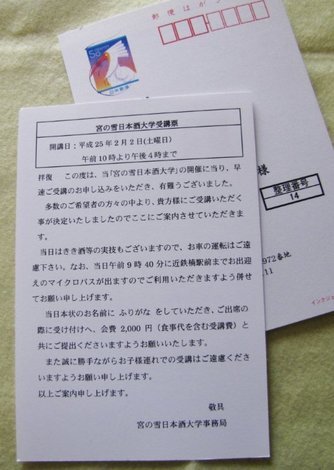 郵便はが
50
日本郵便
様
整理番号
14
972番地
11
インクジェ
宮の雪日本酒大学受講票
開講日：平成25年2月2日(土曜日)
午前10時より午後4時まで
拝復　この度は、当「宮の雪日本酒大学」の開催に当り、早
速ご受講のお申し込みをいただき、有難うございました。
多数のご希望者の方々の中より、貴方様にご受講いただく
事が決定いたしましたのでここにご案内させていただきま
す。
当日はきき酒等の実技もございますので、お車の運転はご遠
慮下さい。なお、当日午前9時40分に近鉄楠駅前までお出迎
えのマイクロバスが出ますのでご利用いただきますよう併せ
てお願い申し上げます。
当日本状のお名前に ふりがな をしていただき、ご出席の
際に受け付けへ、会費 2,000円（食事代を含む受講費）と
共にご提出くださいますようお願いいたします。
また誠に勝手ながらお子様連れでの受講はご遠慮くださ
いますようお願い申し上げます。
以上ご案内申し上げます。
敬具
宮の雪日本酒大学事務局